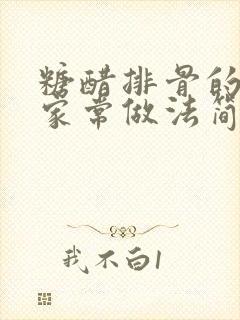 糖醋排骨的
家常做法简
我不白1